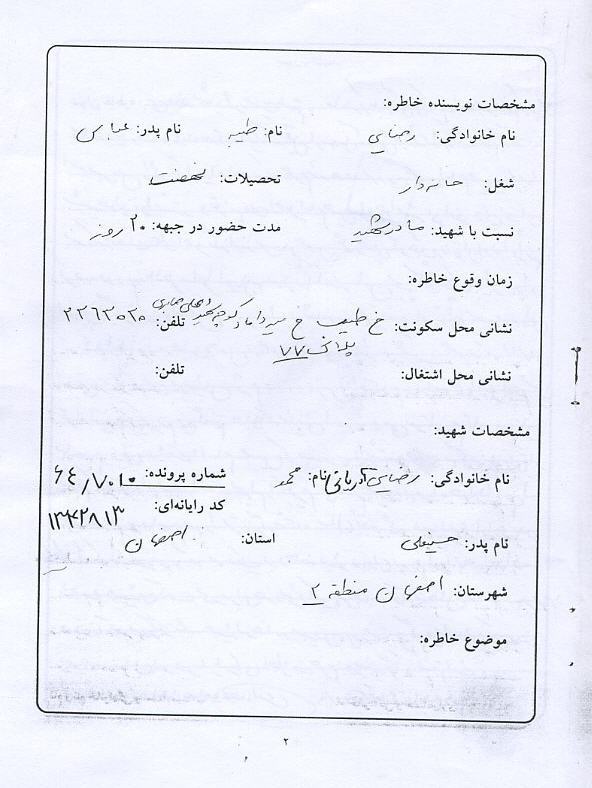 مشخصات نویسنده خاطره:
نام خانوادگی: رضایی نام: طیبه نام پدر: عباس
شغل: خانه‌دار تحصیلات: نهضت
نسبت با شهید: مادر شهید مدت حضور در جبهه: ۲۰ روز
زمان وقوع خاطره:
نشانی محل سکونت: خ طیب خ میرداماد کوچه شهید تلفن: ۲۲۶۳۰۲۰
پلاک ۷۷
نشانی محل اشتغال: تلفن:
مشخصات شهید:
نام خانوادگی: رضایی آدریانی نام: محمد شماره پرونده: ۶۴/۷۰۱۰
کد رایانه‌ای: ۱۳۴۲۸۱۳
نام پدر: حسینعلی استان: اصفهان
شهرستان: اصفهان منطقه ۲
موضوع خاطره:
۲